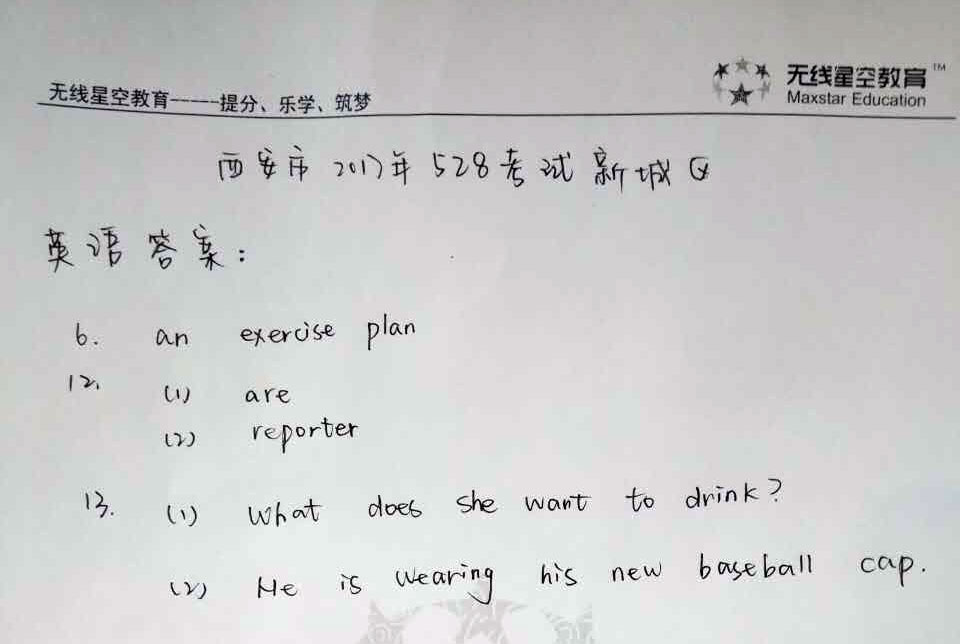 无线星空教育-----提分、乐学、筑梦
无线星空教育™
Maxstar Education
西安市 2017年 528考试 新城区
英语 答案:
6. an exercise plan
12. (1) are
(2) reporter
13. (1) What does she want to drink?
(2) He is wearing his new baseball cap.